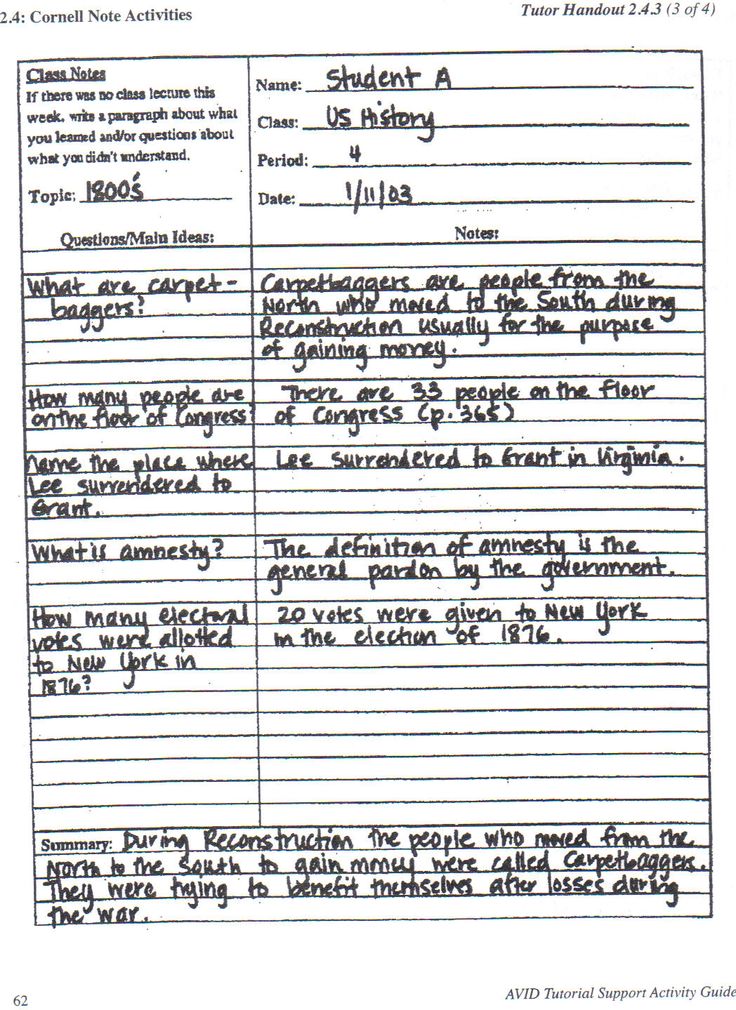 2.4: Cornell Note Activities
Tutor Handout 2.4.3 (3 of 4)
Class Notes
If there was no class lecture this
week, write a paragraph about what
you learned and/or questions about
what you didn't understand.
Topic: 1800's
Name: Student A
Class: US History
Period: 4
Date: 1/11/03
Questions/Main Ideas:
Notes:
What are carpet-
baggers?
Carpetbaggers are people from the
North who moved to the South during
Reconstruction usually for the purpose
of gaining money.
How many people are
on the floor of Congress?
There are 33 people on the floor
of Congress (p. 365)
Name the place where
Lee surrendered to
Grant.
Lee surrendered to Grant in Virginia.
What is amnesty?
The definition of amnesty is the
general pardon by the government.
How many electoral
votes were allotted
to New York in
1876?
20 votes were given to New York
in the election of 1876.
Summary: During Reconstruction the people who moved from the
North to the South to gain money were called Carpetbaggers.
They were trying to benefit themselves after losses during
the war.
62
AVID Tutorial Support Activity Guide